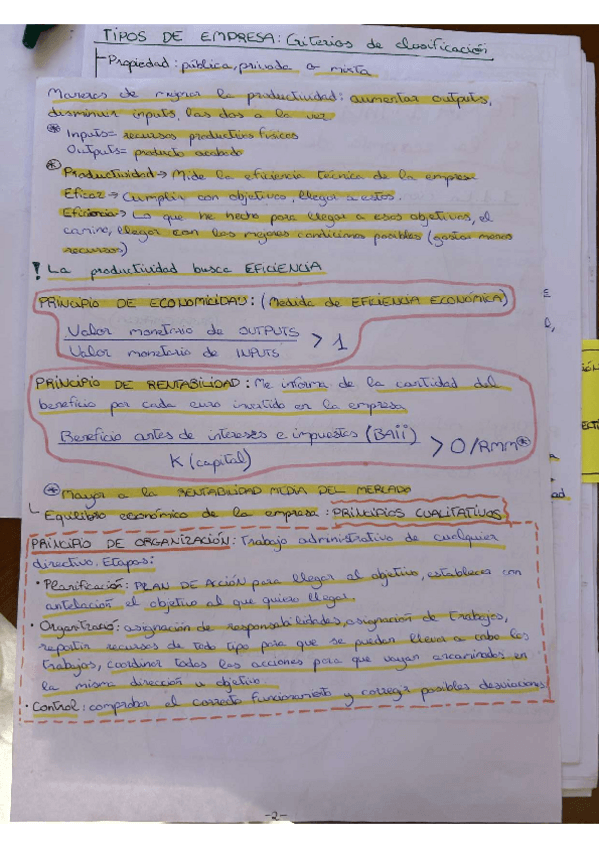 TIPOS DE EMPRESA: Criterios de clasificación
Propiedad: pública, privada o mixta
Maneras de mejorar la productividad: aumentar outputs,
disminuir inputs, las dos a la vez
* Inputs= recursos productivos físicos
Outputs= producto acabado
* Productividad → Mide la eficiencia técnica de la empresa
Eficaz → Cumplir con objetivos, llegar a estos.
Eficiencia → Lo que he hecho para llegar a esos objetivos, el
camino, llegar con las mejores condiciones posibles (gastar menos
recursos)
! La productividad busca EFICIENCIA
PRINCIPIO DE ECONOMICIDAD: (Medida de EFICIENCIA ECONÓMICA)
Valor monetario de OUTPUTS
Valor monetario de INPUTS
> 1
PRINCIPIO DE RENTABILIDAD: Me informa de la cantidad del
beneficio por cada euro invertido en la empresa
Beneficio antes de intereses e impuestos (BAii)
K (capital)
> 0/RMM*
* Mayor a la RENTABILIDAD MEDIA DEL MERCADO
Equilibrio económico de la empresa: PRINCIPIOS CUALITATIVOS
PRINCIPIO DE ORGANIZACIÓN: Trabajo administrativo de cualquier
directivo. Etapas:
· Planificación: PLAN DE ACCIÓN para llegar al objetivo, establecer con
antelación el objetivo al que quiero llegar.
· Organización: asignación de responsabilidades, asignación de trabajos,
repartir recursos de todo tipo para que se puedan llevar a cabo los
trabajos, coordinar todas las acciones para que vayan encaminadas en
la misma dirección u objetivo.
· Control: comprobar el correcto funcionamiento y corregir posibles desviaciones
-2-